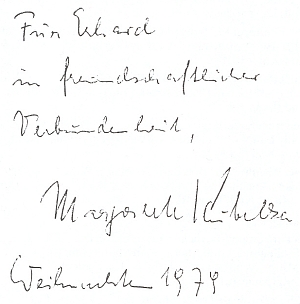 Für Erhard
in freundschaftlicher
Verbundenheit,
Margarete Kubelka
Weihnachten 1979